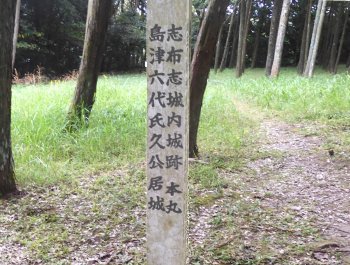 志布志城内城跡 本丸
島津六代氏久公居城